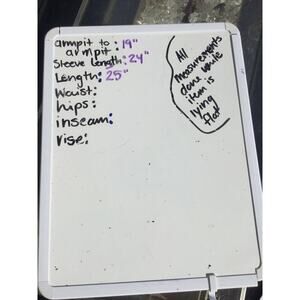 armpit to
armpit: 19"
Sleeve Length: 24"
Length: 25"
Waist:
hips:
inseam:
rise:
All
measurements
done while
item is
lying
flat